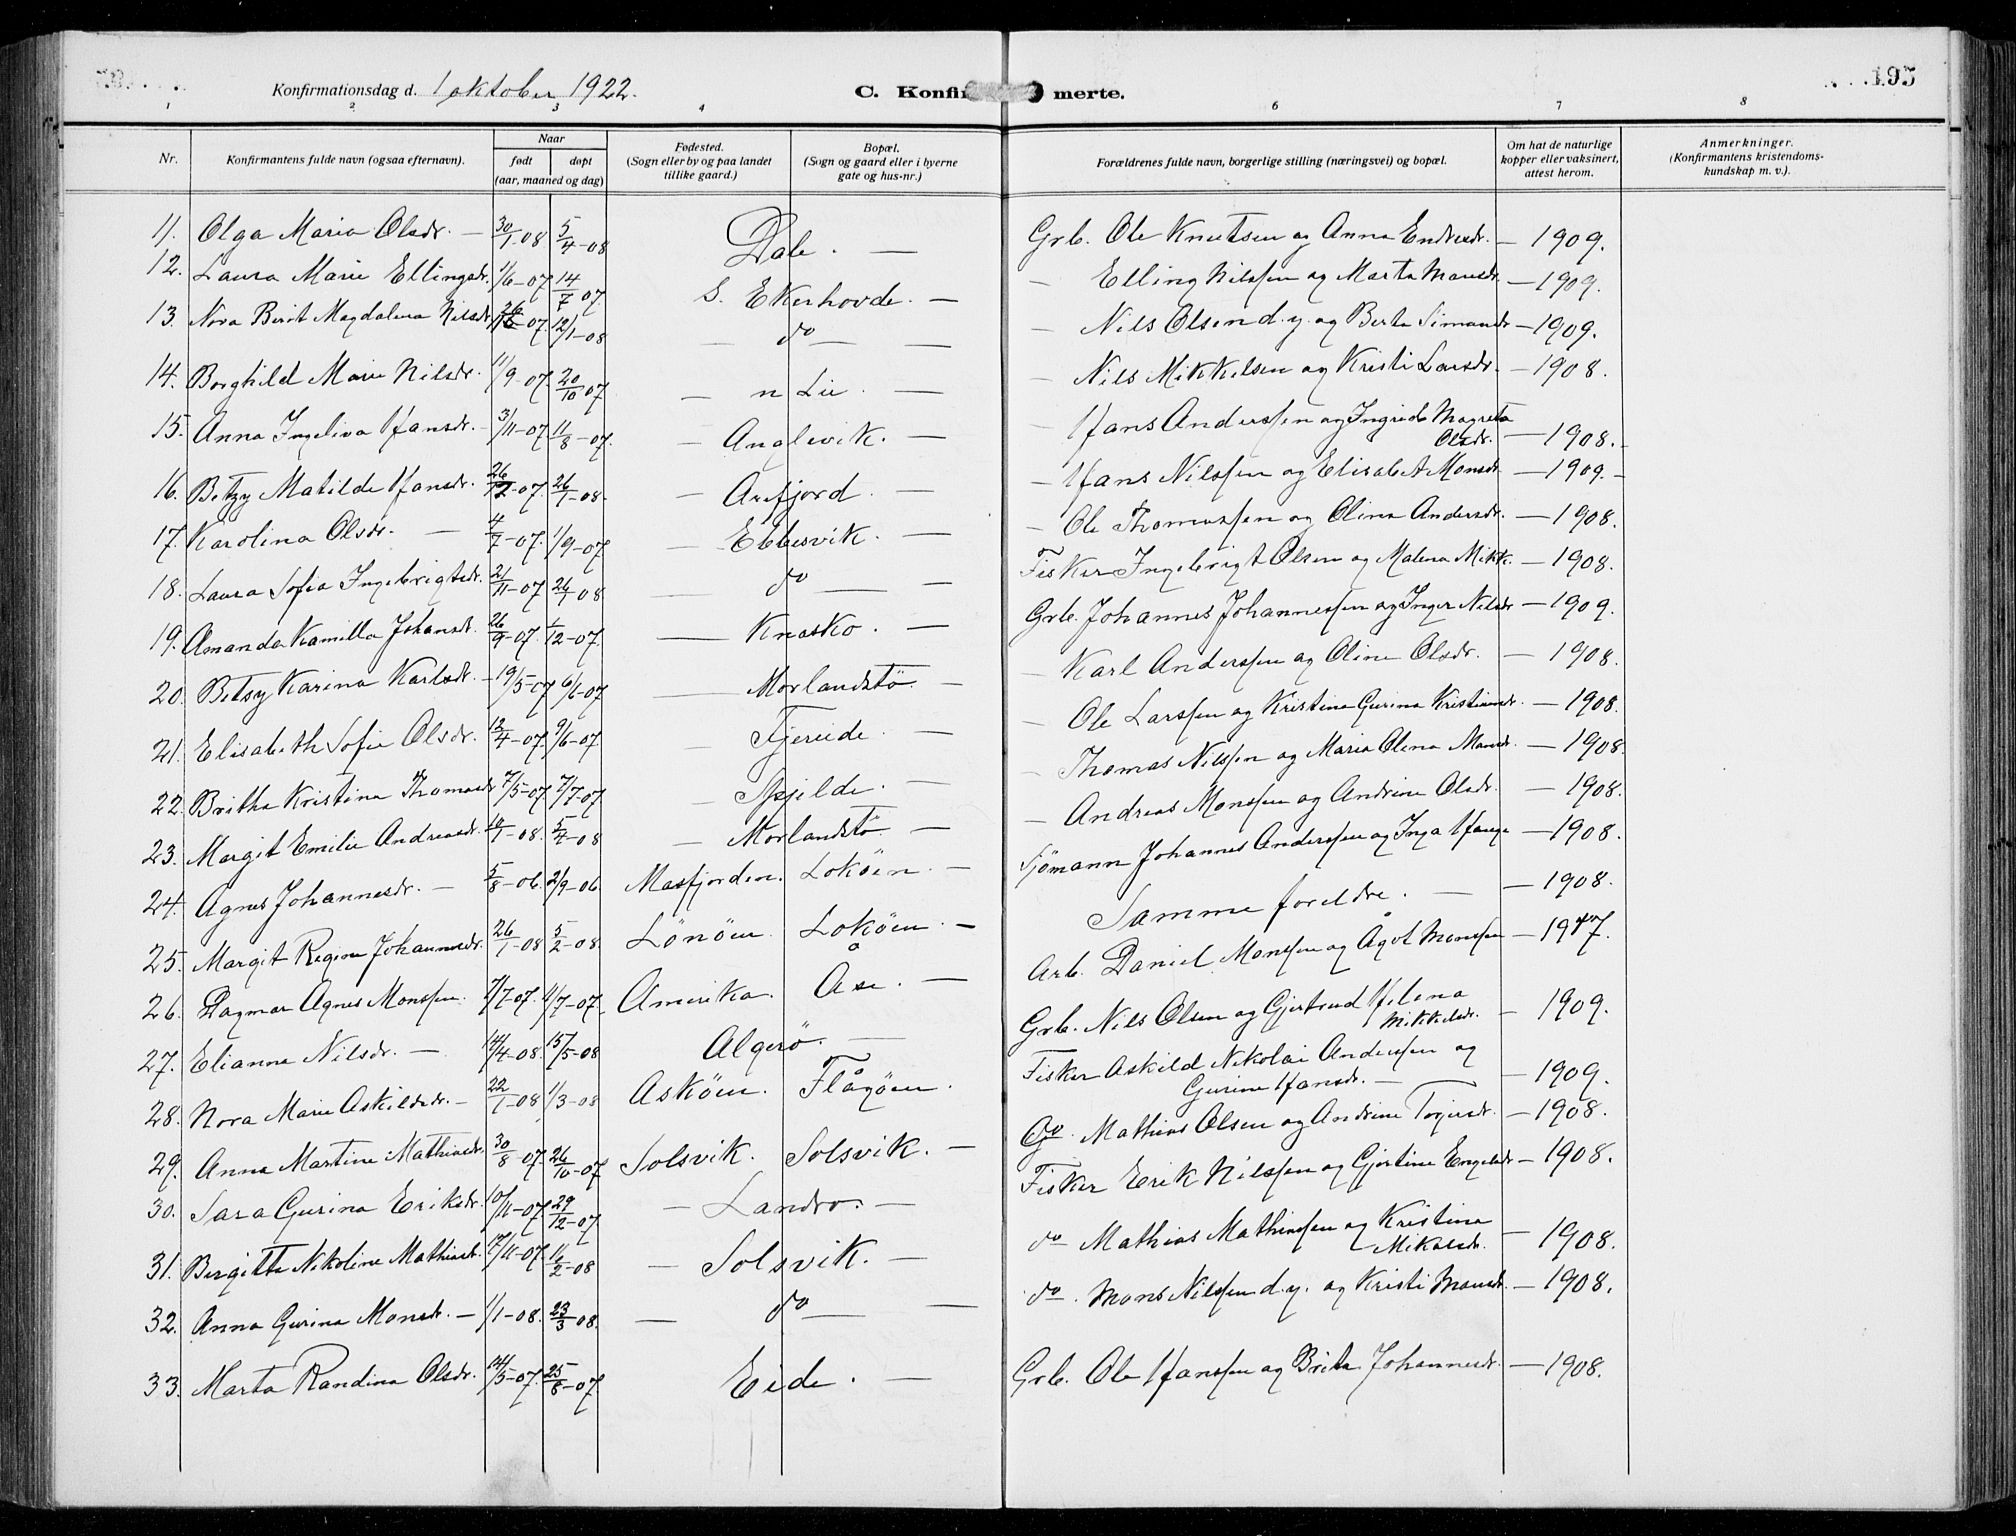 Konfirmationsdag d. 1 oktober 1922.
C. Konfir merte.
195
1 2 3 4 6 7 8
Nr. Konfirmantens fulde navn (ogsaa efternavn). Naar født døpt (aar, maaned og dag) Fødested. (Sogn eller by og paa landet tillike gaard.) Bopæl. (Sogn og gaard eller i byerne gate og hus-nr.) Forældrenes fulde navn, borgerlige stilling (næringsvei) og bopæl. Om hat de naturlige kopper eller vaksinert, attest herom. Anmerkninger. (Konfirmantens kristendoms-kundskap m. v.).
11. Olga Maria Olsdr. — 30/1-08 5/4-08 Dale. — Grb. Ole Knutsen og Anna Endresdr. — 1909.
12. Laura Marie Ellingsdr. 1/6-07 14/7 07. S. Ekerhovde. — — Elling Nilssen og Marta Monsdr — 1909.
13. Nora Berit Magdalena Nilsdr 07. 12/1-08 — do — — — Nils Olsen d.y. og Berta Simonsdr — 1909.
14. Borghild Marie Nilsdr. 11/9-07. 20/10 07 — n Lie. — — Nils Mikkelsen og Kristi Larsdr. — 1908.
15. Anna Ingeliva Hansdr. — 3/11-07 11/8-07. — Anglevik. — — Hans Anderssen og Ingrid Magreta Olsdr. — 1908. -
16. Betzy Matilde Hansdr. 26/12-07. 26/1-08. — Arefjord. — — Hans Nilssen og Elisabet Monsdr — 1909. -
17. Karolina Olsdr. — 4/7-07. 1/9-07 — Ebbesvik. — — Ole Thomassen og Olina Andersdr. — 1908.
18. Laura Sofia Ingebrigtsdr. 21/11-07 26/1 08 — do — — Fisker Ingebrigt Olsen og Malena Mikk. — 1908.
19. Amanda Kamilla Johansdr. 26/9-07. 1/12-07. — Knasko. — Grb. Johannes Johannessen og Inger Nilsdr — 1909.
20. Betsy Karina Karlsdr. — 19/5-07 6/6-07 — Morlandstö. — — Karl Anderssen og Oline Olsdr. — 1908.
21. Elisabeth Sofie Olsdr. 12/4-07. 9/6-07 — Fjereide. — — Ole Larssen og Kristina Gurina Kristiansdr. — 1908.
22. Britha Kristina Thomasdr 7/5-07. 7/7-07 — Skjilde. — — Thomas Nilssen og Maria Olena Monsdr. — 1908.
23. Margit Emilie Andreasdr. 10/1-08. 5/4-08 — Morlandstö — — Andreas Monssen og Andrine Olsdr. — 1908.
24. Agnes Johannesdr. — 5/8-06. 2/9-06. Masfjorden. Loköen. — Sjömann Johannes Anderssen og Inga Hauge — 1908.
25. Margit Regine Johannesdr. 26/1-08 5/2-08. Lönöen. Loköen. — Samme foreldre. — — 1908.
26. Dagmar Agnes Monssen. 7/7-07. 4/7-07. Amerika. Åse. — Arb. Daniel Monssen og Ågot Monssen — 1917.
27. Elianna Nilsdr. — 14/4-08. 15/5-08 Algerö. — Grb. Nils Olsen og Gjertrud Helena Mikkelsdr. — 1909.
28. Nora Marie Askildsdr. — 22/1-08 1/3-08 Asköen. Flågöen. Fisker Askild Nikolai Anderssen og Gurine Hansdr. — — 1909.
29. Anna Martine Mathiasdr. 30/8-07. 26/10-07 Solsvik. Solsvik. — do. Mathias Olsen og Andrine Torjersdr. — 1908.
30. Sara Gurina Eriksdr. 10/11-07. 29/12-07 — Landro. — Fisker Erik Nilssen og Gjertine Engelsdr — 1908.
31. Birgitta Nikoline Mathiasdr. 17/11-07. 16/2-08 — Solsvik. — do Mathias Mathiassen og Kristina Mikalsdr. — 1908.
32. Anna Gurina Monsdr. — 1/1-08. 23/3 08. — do — — do. Mons Nilssen d.y. og Kristi Monsdr. — 1908.
33. Marta Randina Olsdr. 14/5-07. 25/8-07 Eide. — Grb. Ole Hanssen og Brita Johannesdr. — 1908.